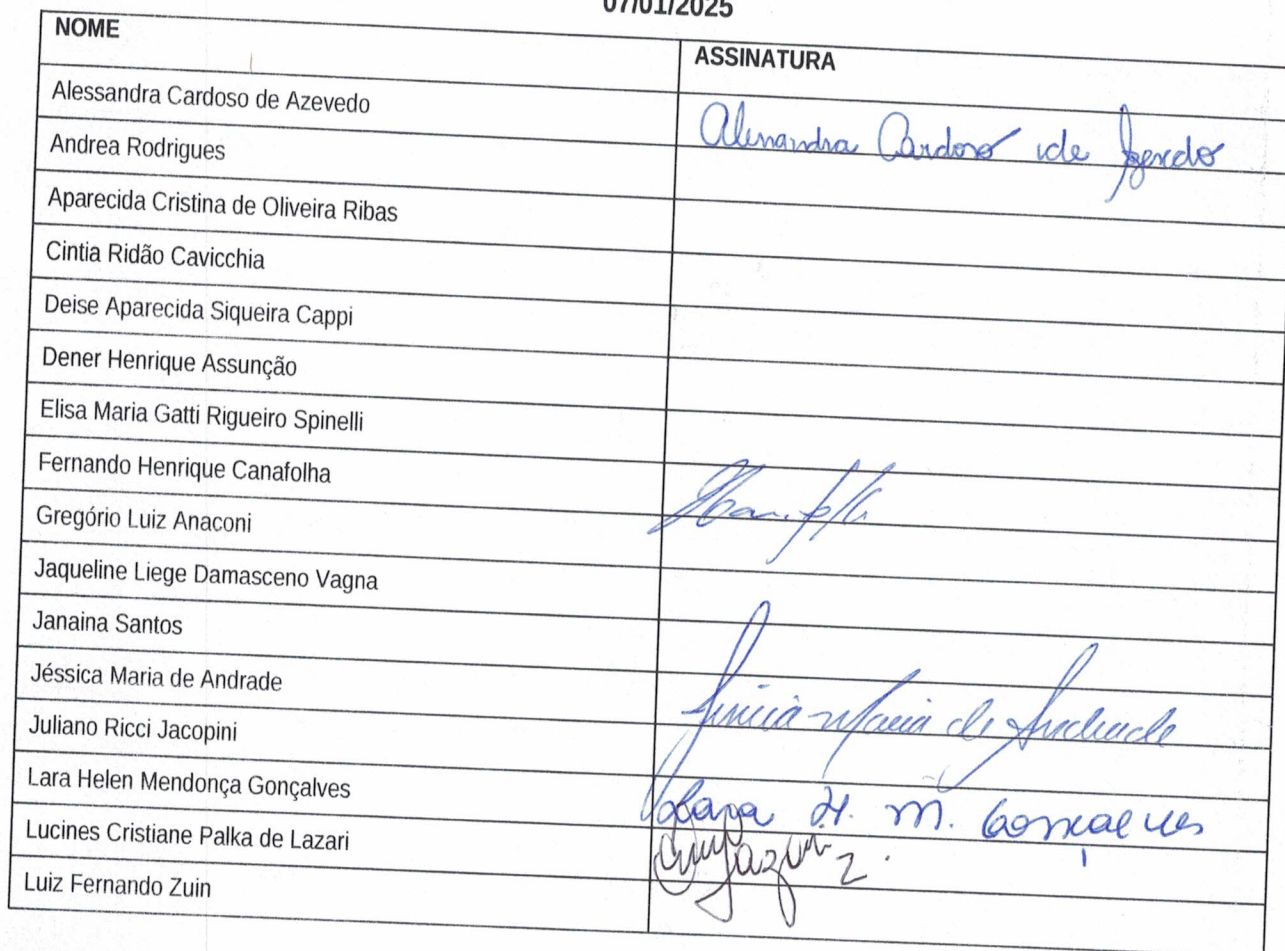 07/01/2025
NOME ASSINATURA
Alessandra Cardoso de Azevedo Alessandra Cardoso de Azevedo
Andrea Rodrigues
Aparecida Cristina de Oliveira Ribas
Cintia Ridão Cavicchia
Deise Aparecida Siqueira Cappi
Dener Henrique Assunção
Elisa Maria Gatti Rigueiro Spinelli
Fernando Henrique Canafolha
Gregório Luiz Anaconi
Jaqueline Liege Damasceno Vagna
Janaina Santos
Jéssica Maria de Andrade Jéssica Maria de Andrade
Juliano Ricci Jacopini
Lara Helen Mendonça Gonçalves Lara H. M. Gonçalves
Lucines Cristiane Palka de Lazari
Luiz Fernando Zuin